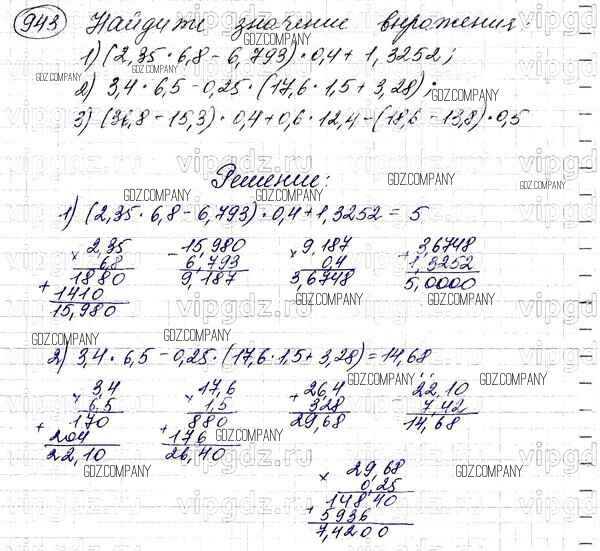 943 Найдите значение выражения:
1) (2,35 · 6,8 − 6,793) · 0,4 + 1,3252;
2) 3,4 · 6,5 − 0,25 · (17,6 · 1,5 + 3,28);
3) (36,8 − 15,3) · 0,4 + 0,6 · 12,4 − (18,6 − 13,8) · 0,5
Решение:
1) (2,35 · 6,8 − 6,793) · 0,4 + 1,3252 = 5
× 2,35 − 15,980 × 9,187 + 3,6748
6,8 6,793 0,4 1,3252
1880 9,187 3,6748 5,0000
+ 1410
15,980
2) 3,4 · 6,5 − 0,25 · (17,6 · 1,5 + 3,28) = 14,68
× 3,4 × 17,6 + 26,4 22,10
6,5 1,5 328 7,42
170 880 29,68 14,68
+ 204 + 176
22,10 26,40
× 29,68
0,25
14840
+ 5936
7,4200
GDZ.COMPANY
vipgdz.ru